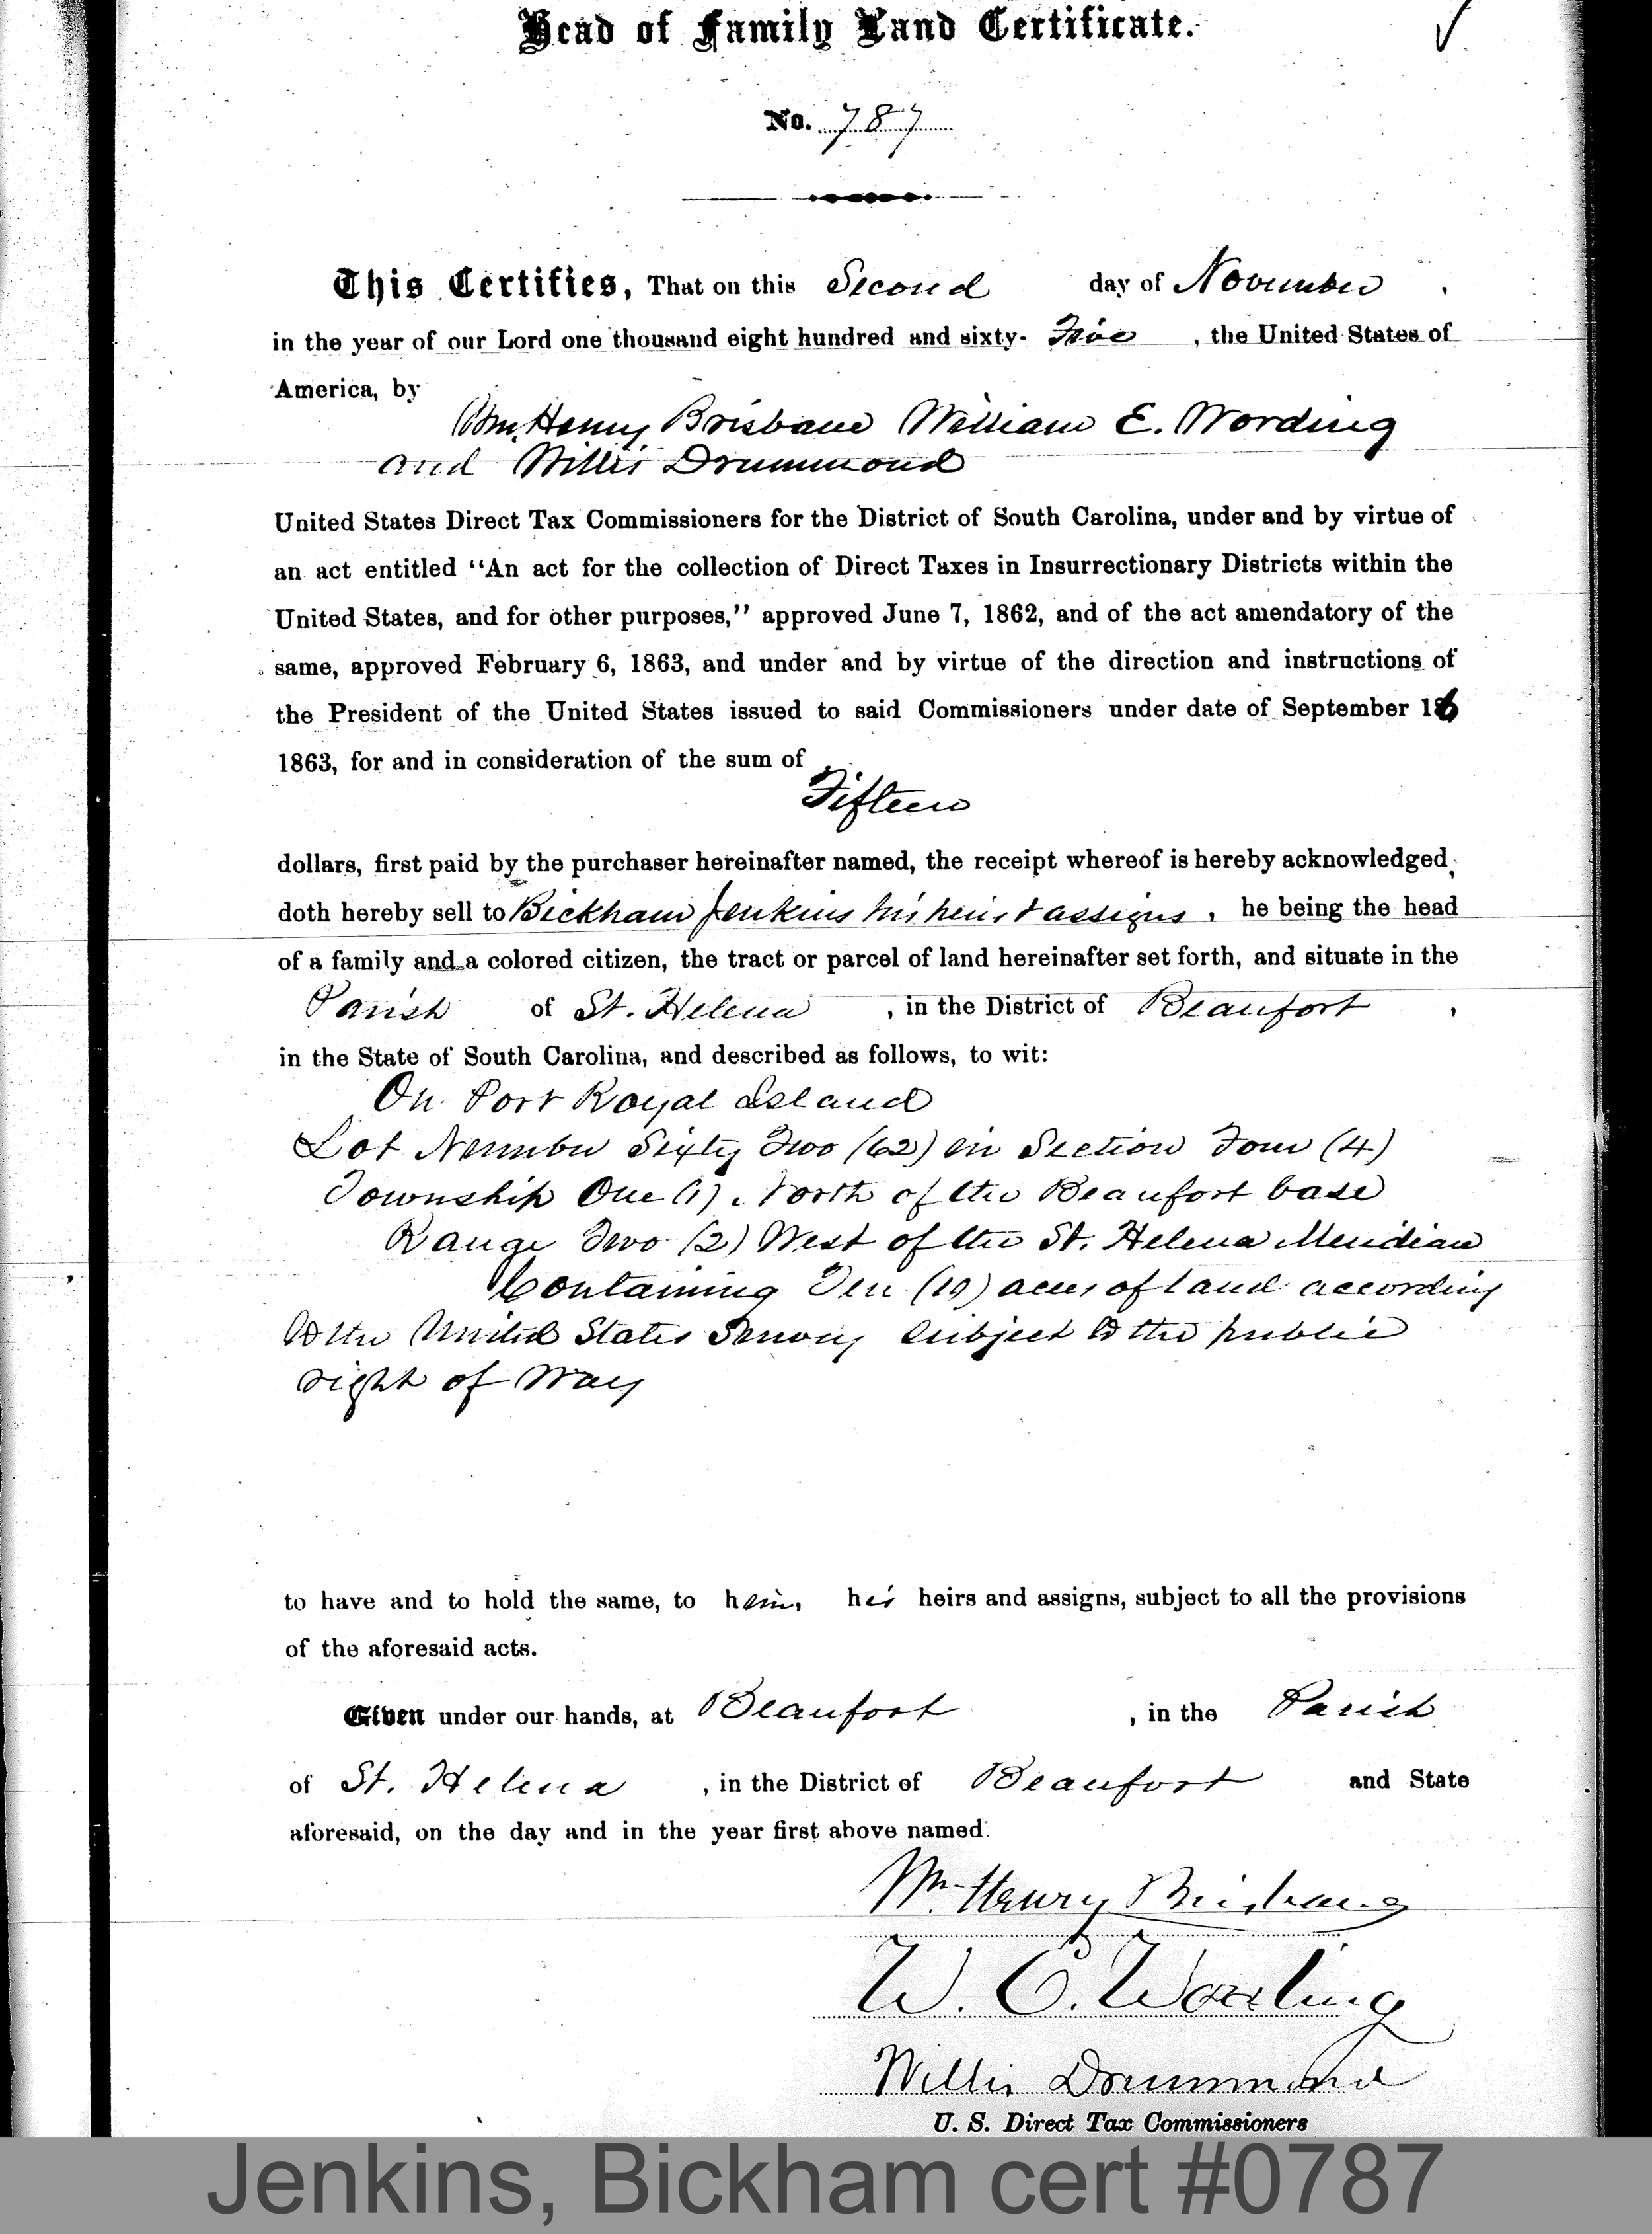 Head of Family Land Certificate.
No. 787
This Certifies, That on this Second day of November,
in the year of our Lord one thousand eight hundred and sixty-Five, the United States of
America, by
Wm. Henry Brisbane William E. Wording
and Willis Drummond
United States Direct Tax Commissioners for the District of South Carolina, under and by virtue of
an act entitled "An act for the collection of Direct Taxes in Insurrectionary Districts within the
United States, and for other purposes," approved June 7, 1862, and of the act amendatory of the
same, approved February 6, 1863, and under and by virtue of the direction and instructions of
the President of the United States issued to said Commissioners under date of September 16
1863, for and in consideration of the sum of
Fifteen
dollars, first paid by the purchaser hereinafter named, the receipt whereof is hereby acknowledged,
doth hereby sell to Bickham Jenkins his heirs & assigns, he being the head
of a family and a colored citizen, the tract or parcel of land hereinafter set forth, and situate in the
Parish of St. Helena, in the District of Beaufort,
in the State of South Carolina, and described as follows, to wit:
On Port Royal Island
Lot Number Sixty Two (62) in Section Four (4)
Township One (1) North of the Beaufort base
Range Two (2) West of the St. Helena Meridian
Containing Ten (10) acres of land according
to the United States Survey subject to the public
right of Way
to have and to hold the same, to him, his heirs and assigns, subject to all the provisions
of the aforesaid acts.
Given under our hands, at Beaufort, in the Parish
of St. Helena, in the District of Beaufort and State
aforesaid, on the day and in the year first above named.
Wm. Henry Brisbane
W. E. Wording
Willis Drummond
U. S. Direct Tax Commissioners
Jenkins, Bickham cert #0787